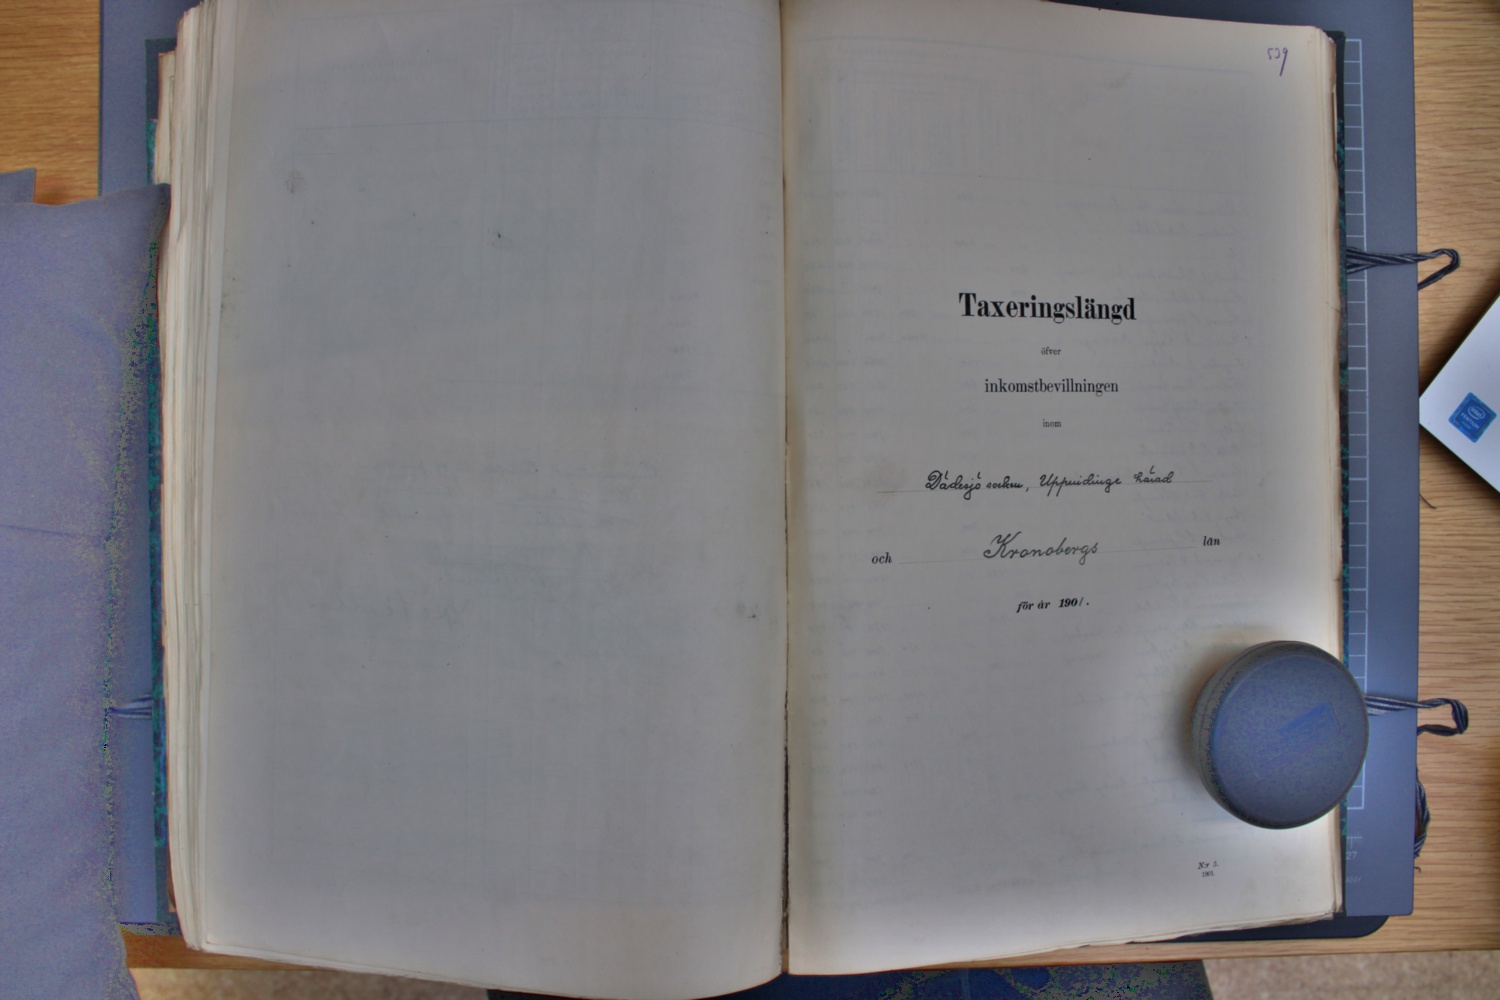 539
Taxeringslängd
öfver
inkomstbevillningen
inom
Dädesjö socken, Uppvidinge härad
och Kronobergs län
för år 1901.
N:r 5.
1901.
27